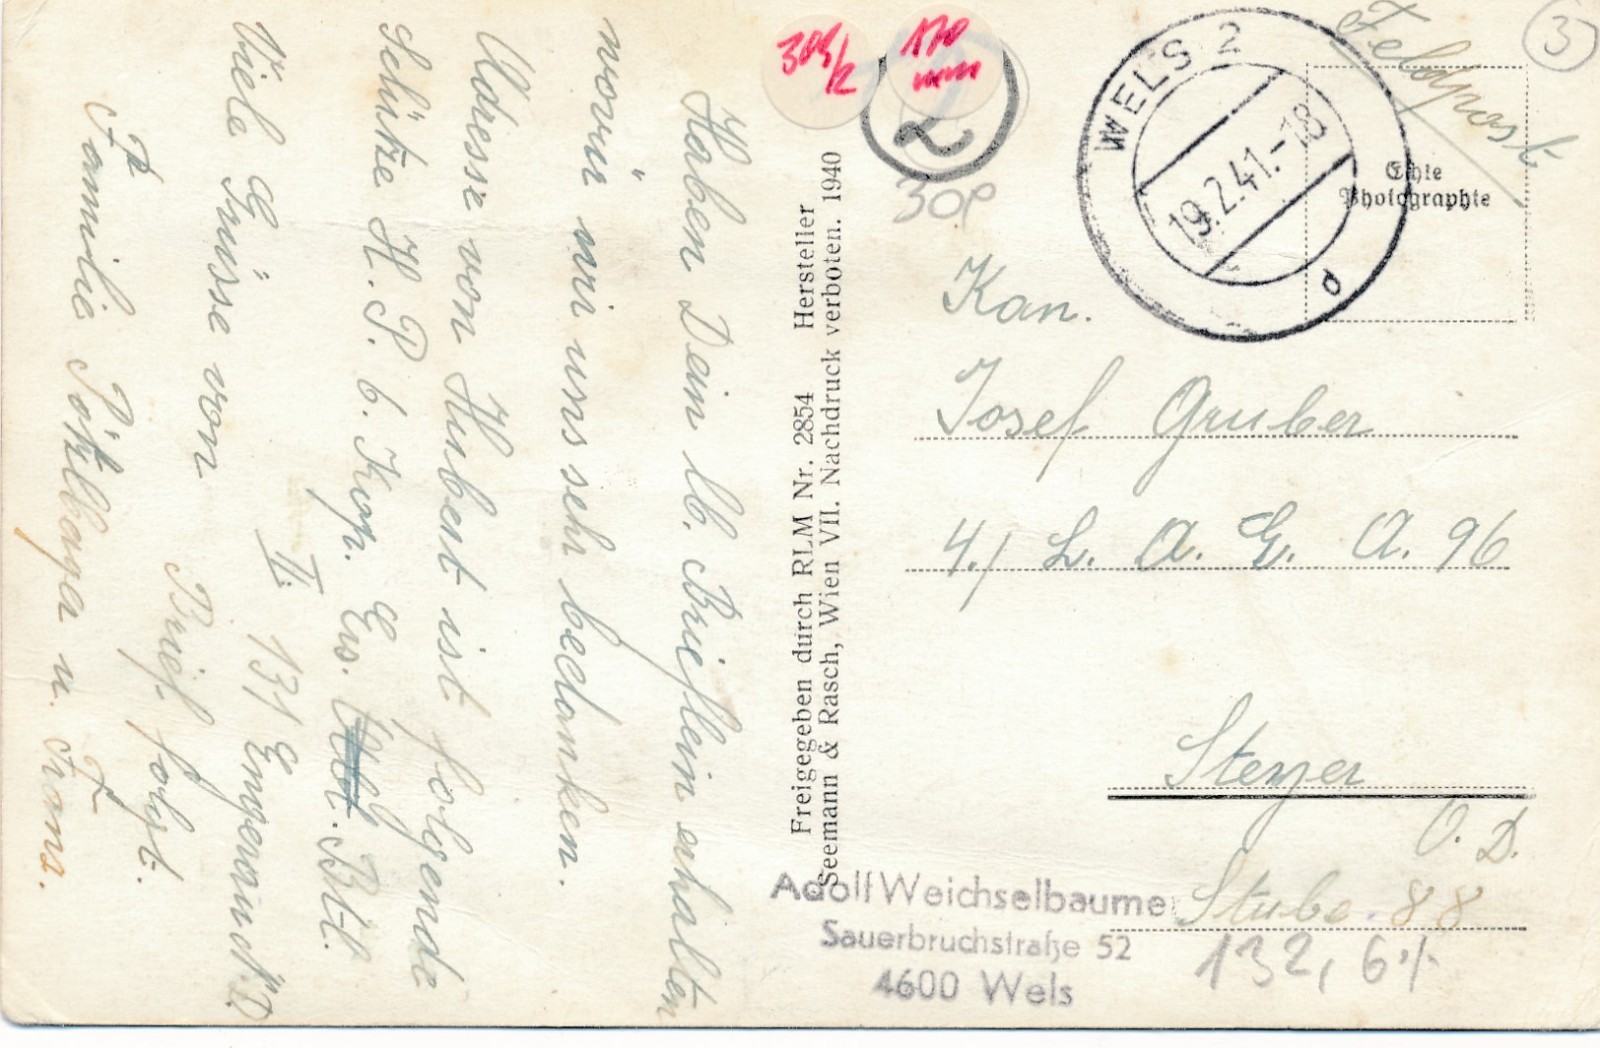 Haben Dein lb. Brieflein erhalten
wovür wir uns sehr bedanken.
Adresse von Hubert ist folgende
Schütze H. P. 6. Kop. Ers. Btl.
II. 131
Viele Grüsse von
Brief folgt.
Familie u. Franz.
Freigegeben durch RLM Nr. 2854 Hersteller
Seemann & Rasch, Wien VII. Nachdruck verboten. 1940
304/2
170
mm
2
30P
WELS 2
19.2.41.-18
d
Feldpost
3
Echte
Photographie
Kan.
Josef Gruber
4./ L. A. E. A. 96
Steyer
O. D.
Stube 88
132, 6
Adolf Weichselbaumer
Sauerbruchstraße 52
4600 Wels